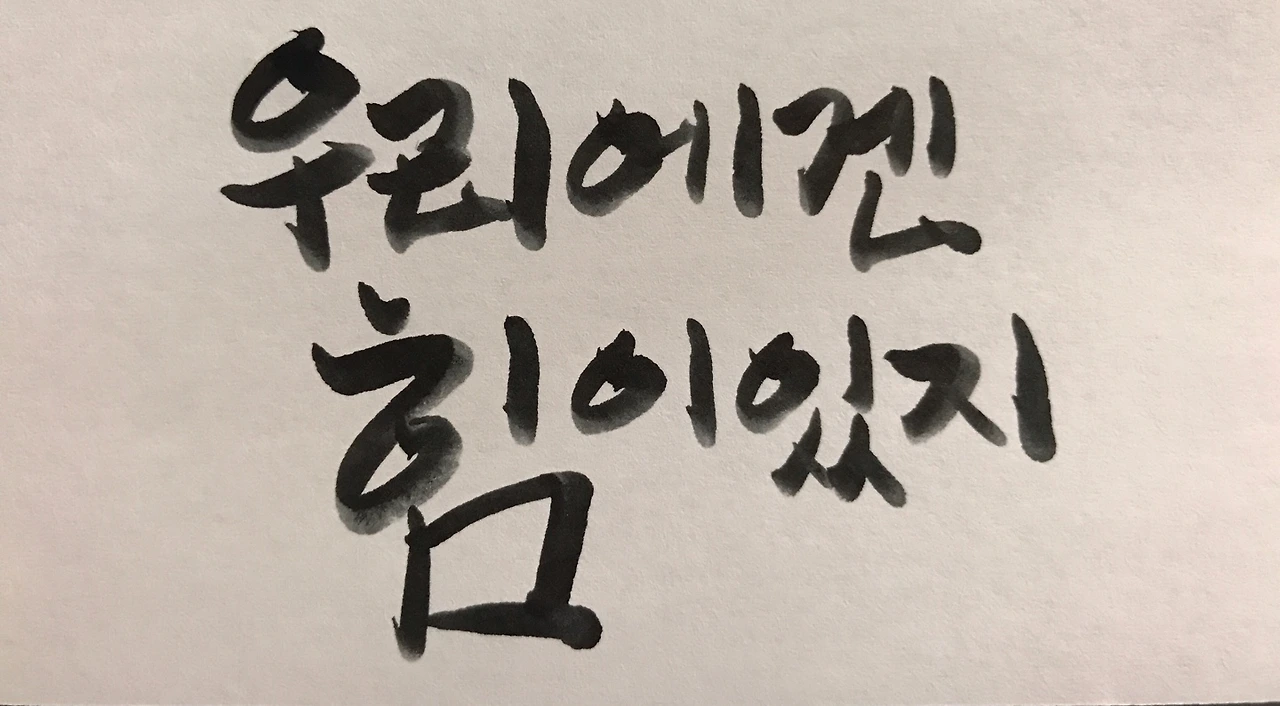 우리에겐
힘이있지